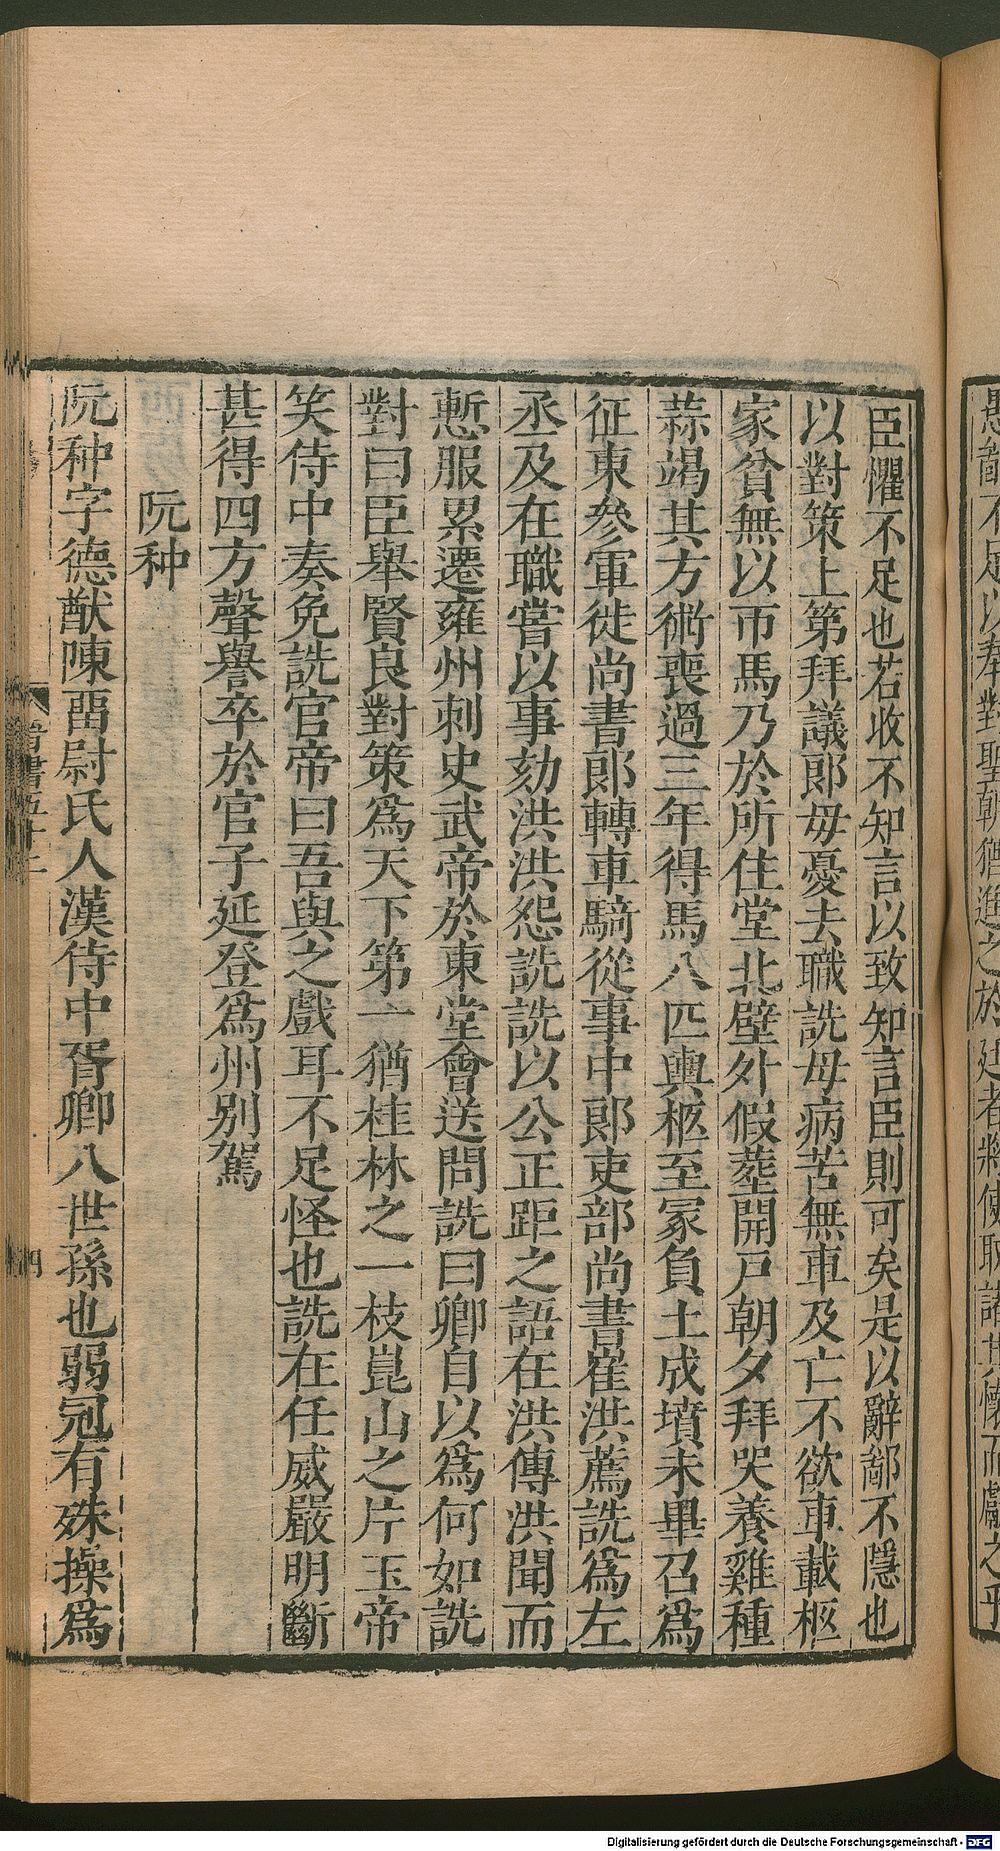 愚鄙不足以奉對聖朝猶進之於廷者將使取諸其懷而獻之乎
臣懼不足也若收不知言以致知言臣則可矣是以辭鄙不隱也
以對策上第拜議郎母憂去職詵母病苦無車及亡不欲車載柩
家貧無以市馬乃於所住堂北壁外假葬開戶朝夕拜哭養雞種
蒜竭其方術喪過三年得馬八匹輿柩至冢負土成墳未畢召爲
征東參軍徙尚書郎轉車騎從事中郎吏部尚書崔洪薦詵爲左
丞及在職嘗以事劾洪洪怨詵詵以公正距之語在洪傳洪聞而
慙服累遷雍州刺史武帝於東堂會送問詵曰卿自以爲何如詵
對曰臣舉賢良對策爲天下第一猶桂林之一枝崑山之片玉帝
笑侍中奏免詵官帝曰吾與之戲耳不足怪也詵在任威嚴明斷
甚得四方聲譽卒於官子延登爲州別駕
阮种
阮种字德猷陳畱尉氏人漢侍中胥卿八世孫也弱冠有殊操爲
晉書五十二
四
Digitalisierung gefördert durch die Deutsche Forschungsgemeinschaft - DFG